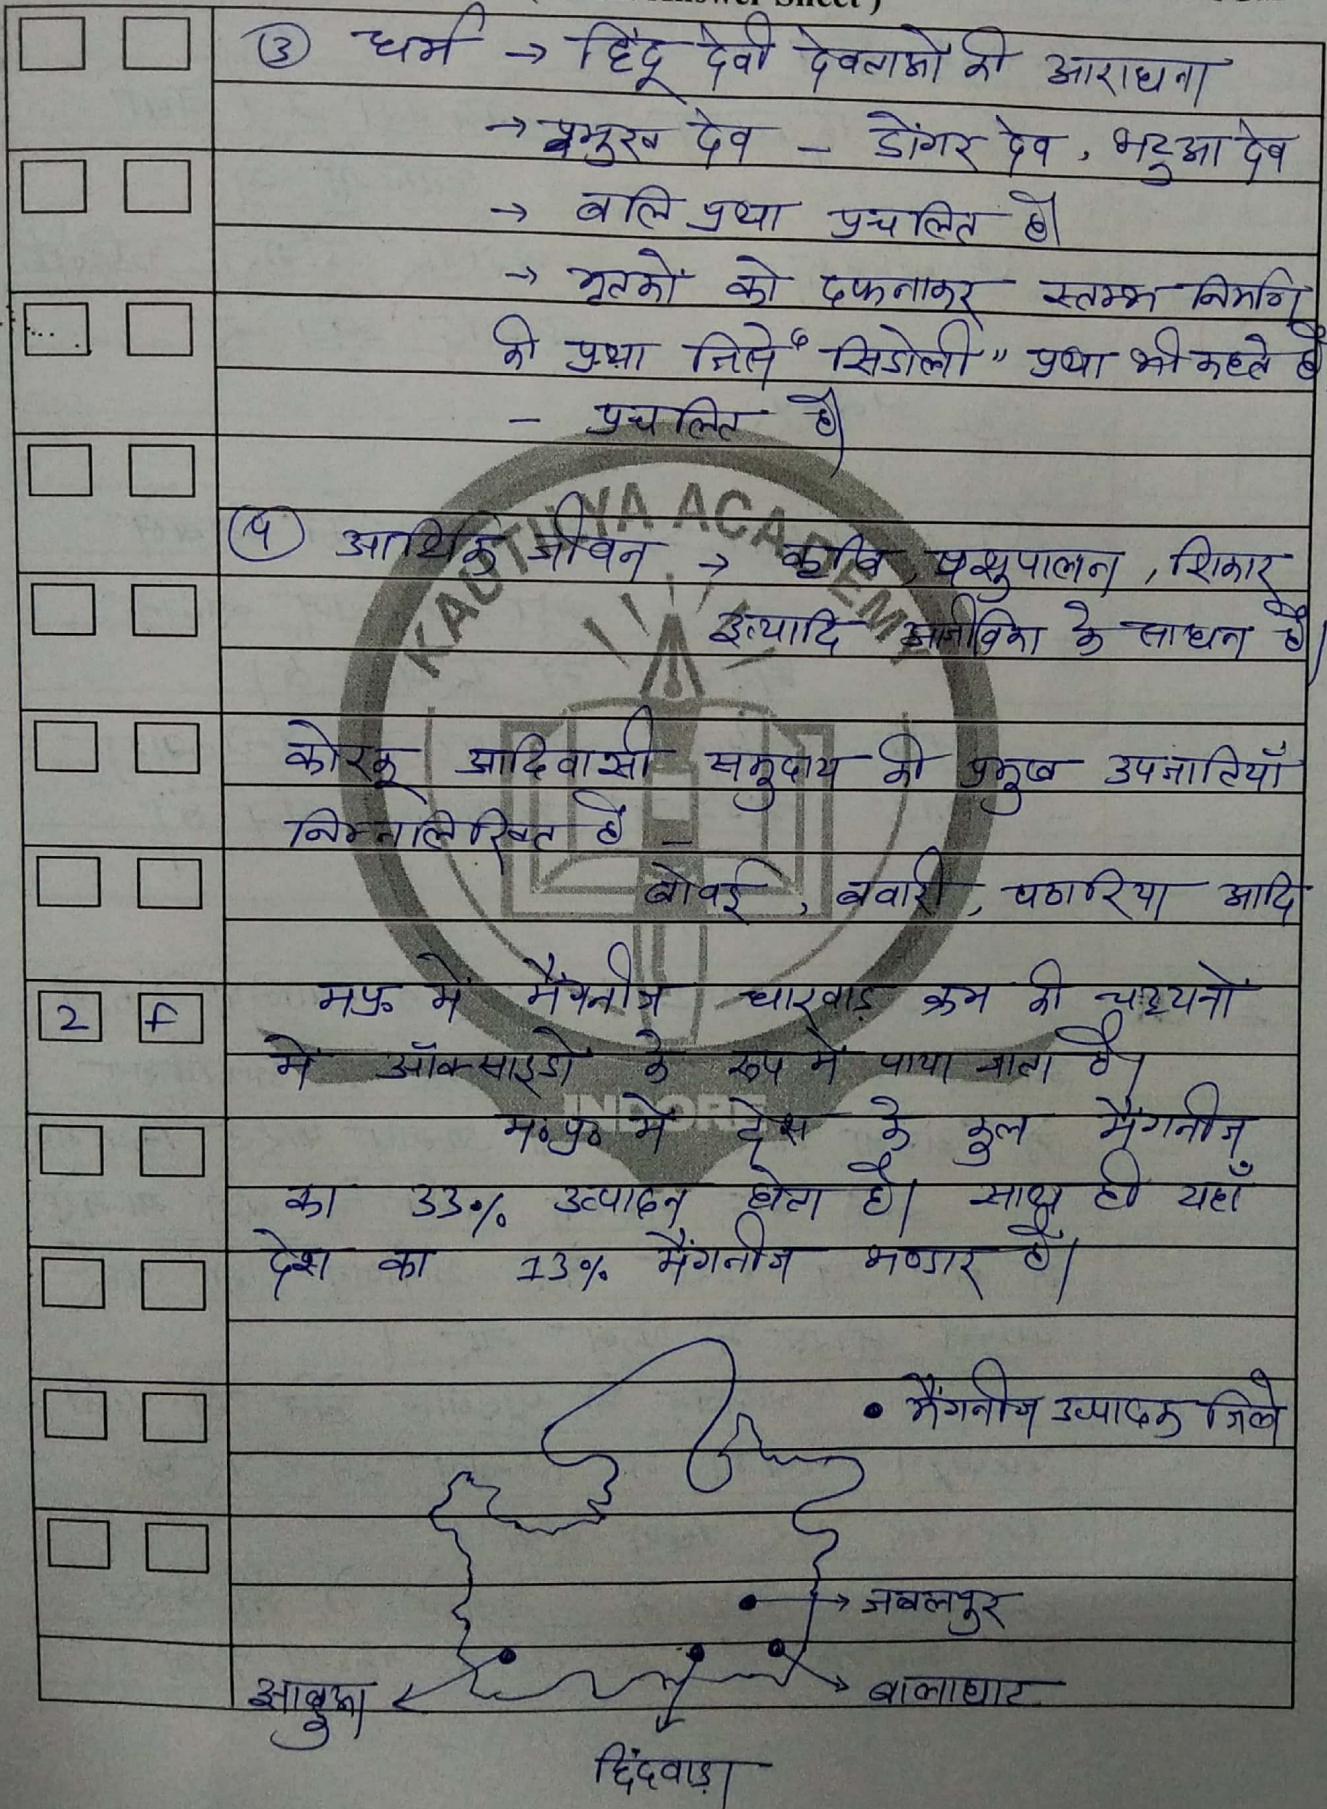 Answer Sheet )
③ धर्म → हिंदू देवी देवताओं की आराधना
→ प्रमुख देव – डोंगर देव, भटुआ देव
→ बलि प्रथा प्रचलित है।
→ मृतकों को दफनाकर स्तम्भ निर्माण
की प्रथा जिसे "सिडोली" प्रथा भी कहते है
– प्रचलित है।
④ आर्थिक जीवन → कृषि, पशुपालन, शिकार
इत्यादि आजीविका के साधन है।
कोरकू आदिवासी समुदाय की प्रमुख उपजातियाँ
निम्नलिखित है –
बोवई, बवारी, पठारिया आदि
2 f मप्र में मैंगनीज धारवाड़ क्रम की चट्टानों
में ऑक्साइडों के रूप में पाया जाता है।
म०प्र० में देश के कुल मैंगनीज
का 33% उत्पादन होता है। साथ ही यहाँ
देश का 13% मैंगनीज भण्डार है।
• मैंगनीज उत्पादक जिले
जबलपुर
झाबुआ
बालाघाट
छिंदवाड़ा
KAUTILYA ACADEMY
INDORE